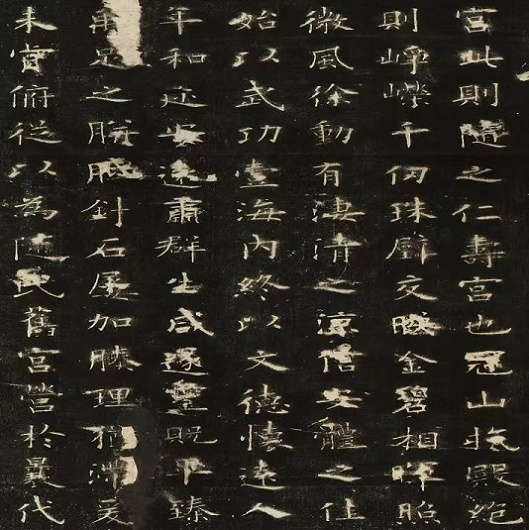 宮此則隨之仁壽宮也冠山抗殿絕
則崢嶸千仞珠璧交映金碧相暉昭
微風徐動有淒清之涼信安體之佳
始以武功壹海內終以文德懷遠人
年和迩安遠肅群生咸遂靈貺畢臻
禹足之胼胝針石屢加腠理猶滯爰
未肯俯從以為隨氏舊宮營於曩代